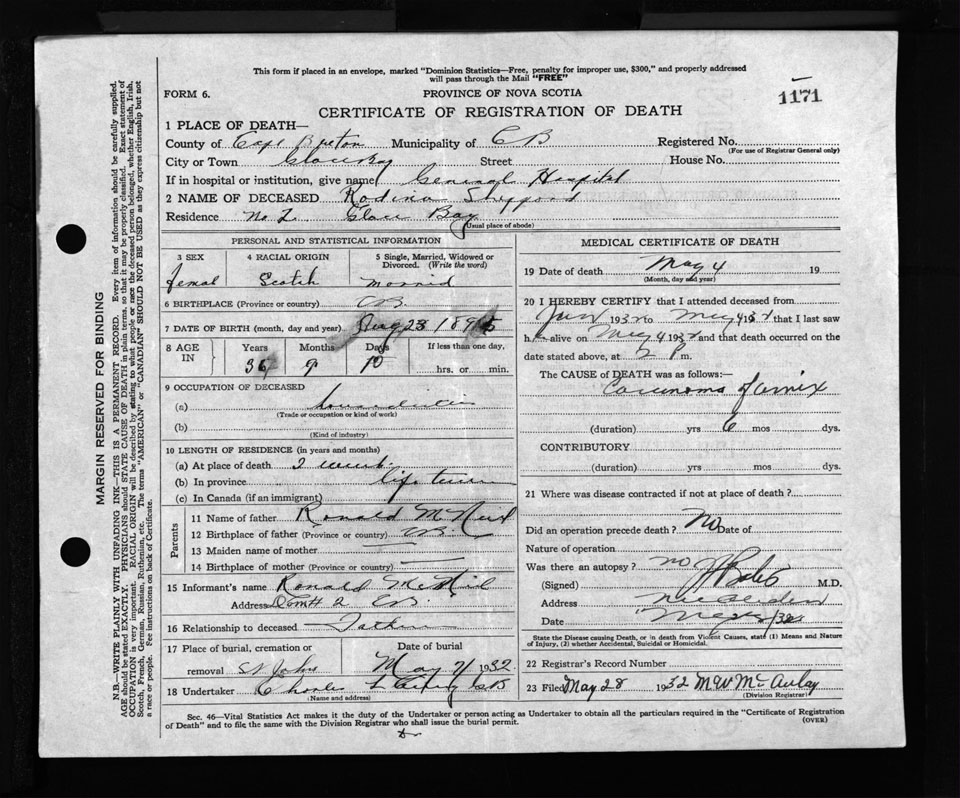 This form if placed in an envelope, marked "Dominion Statistics—Free, penalty for improper use, $300," and properly addressed
will pass through the Mail "FREE"
FORM 6.
PROVINCE OF NOVA SCOTIA
1171
CERTIFICATE OF REGISTRATION OF DEATH
1 PLACE OF DEATH—
County of Cape Breton Municipality of CB Registered No.
(For use of Registrar General only)
City or Town Street House No.
If in hospital or institution, give name General Hospital
2 NAME OF DECEASED
Residence No 2 Glace Bay
(Usual place of abode)
PERSONAL AND STATISTICAL INFORMATION
3 SEX 4 RACIAL ORIGIN 5 Single, Married, Widowed or
Divorced. (Write the word)
femal Scotch
6 BIRTHPLACE (Province or country) CB
7 DATE OF BIRTH (month, day and year) Aug 23 1895
8 AGE IN Years Months Days If less than one day,
36 9 10 hrs. or min.
9 OCCUPATION OF DECEASED
(a)
(Trade or occupation or kind of work)
(b)
(Kind of industry)
10 LENGTH OF RESIDENCE (in years and months)
(a) At place of death
(b) In province life
(c) In Canada (if an immigrant)
Parents
11 Name of father Ronald McNeil
12 Birthplace of father (Province or country) CB
13 Maiden name of mother
14 Birthplace of mother (Province or country)
15 Informant's name Ronald McNeil
Address
16 Relationship to deceased Father
17 Place of burial, cremation or Date of burial
removal St Johns May 7/ 1932
18 Undertaker Charles
(Name and address)
MEDICAL CERTIFICATE OF DEATH
19 Date of death May 4 19
(Month, day and year)
20 I HEREBY CERTIFY that I attended deceased from
1932 to May 4 1932 that I last saw
h alive on May 4 1932 and that death occurred on the
date stated above, at 2 P m.
The CAUSE of DEATH was as follows:—
(duration) yrs 6 mos dys.
CONTRIBUTORY
(duration) yrs mos dys.
21 Where was disease contracted if not at place of death?
Did an operation precede death? No Date of
Nature of operation
Was there an autopsy? no
(Signed) M.D.
Address
Date
State the Disease causing Death, or in death from Violent Causes, state (1) Means and Nature
of Injury, (2) whether Accidental, Suicidal or Homicidal.
22 Registrar's Record Number
23 Filed May 28 1932 M W McAulay
(Division Registrar)
Sec. 46—Vital Statistics Act makes it the duty of the Undertaker or person acting as Undertaker to obtain all the particulars required in the "Certificate of Registration
of Death" and to file the same with the Division Registrar who shall issue the burial permit.
(OVER)
MARGIN RESERVED FOR BINDING
N.B.—WRITE PLAINLY WITH UNFADING INK—THIS IS A PERMANENT RECORD. Every item of information should be carefully supplied.
AGE should be stated EXACTLY. PHYSICIANS should STATE CAUSE OF DEATH in plain terms, so that it may be properly classified. Exact statement of
OCCUPATION is very important. RACIAL ORIGIN will be described by stating to what people or race the deceased person belonged, whether English, Irish,
Scotch, French, German, Russian, Ruthenian, etc. The terms "AMERICAN" or "CANADIAN" SHOULD NOT BE USED as they express citizenship but not
a race or people. Fee instructions on back of Certificate.